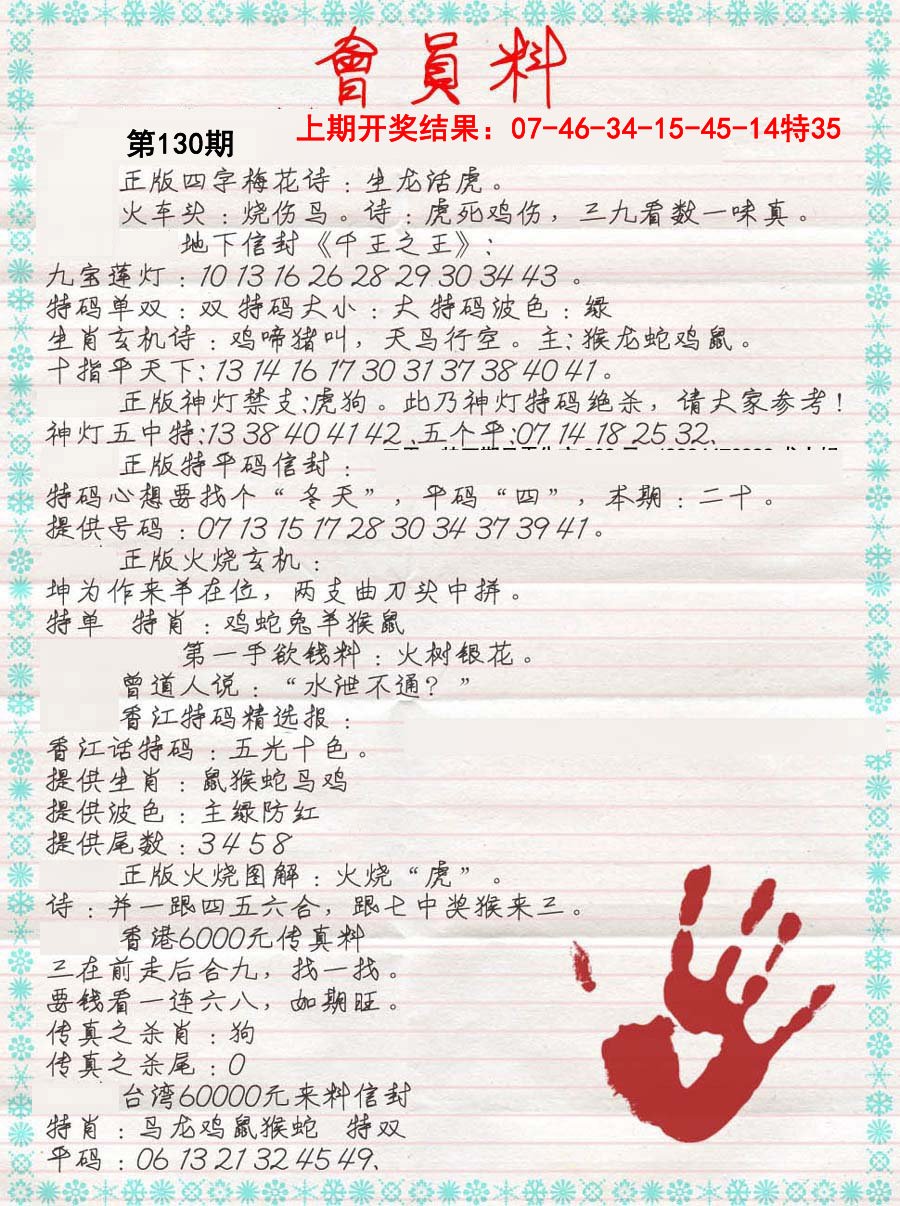 會員料
上期开奖结果：07-46-34-15-45-14特35
第130期
正版四字梅花诗：生龙活虎。
火车头：烧伤鸟。诗：虎死鸡伤，三九看数一味真。
地下信封《千王之王》：
九宝莲灯：10 13 16 26 28 29 30 34 43 。
特码单双：双 特码大小：大 特码波色：绿
生肖玄机诗：鸡啼猪叫，天马行空。主：猴龙蛇鸡鼠。
十指平天下：13 14 16 17 30 31 37 38 40 41。
正版神灯禁支：虎狗。此乃神灯特码绝杀，请大家参考！
神灯五中特：13 38 40 41 42 、五个平：07 14 18 25 32、
正版特平码信封：
特码心想要找个“冬天”，平码“四”，本期：二十。
提供号码：07 13 15 17 28 30 34 37 39 41。
正版火烧玄机：
坤为作来羊在位，两支曲刀头中拼。
特单 特肖：鸡蛇兔羊猴鼠
第一手欲钱料：火树银花。
曾道人说：“水泄不通？”
香江特码精选报：
香江话特码：五光十色。
提供生肖：鼠猴蛇马鸡
提供波色：主绿防红
提供尾数：3 4 5 8
正版火烧图解：火烧“虎”。
诗：并一跟四五六合，跟七中奖猴来三。
香港6000元传真料
三在前走后合九，找一找。
要钱看一连六八，如期旺。
传真之杀肖：狗
传真之杀尾：0
台湾60000元来料信封
特肖：马龙鸡鼠猴蛇 特双
平码：06 13 21 32 45 49、